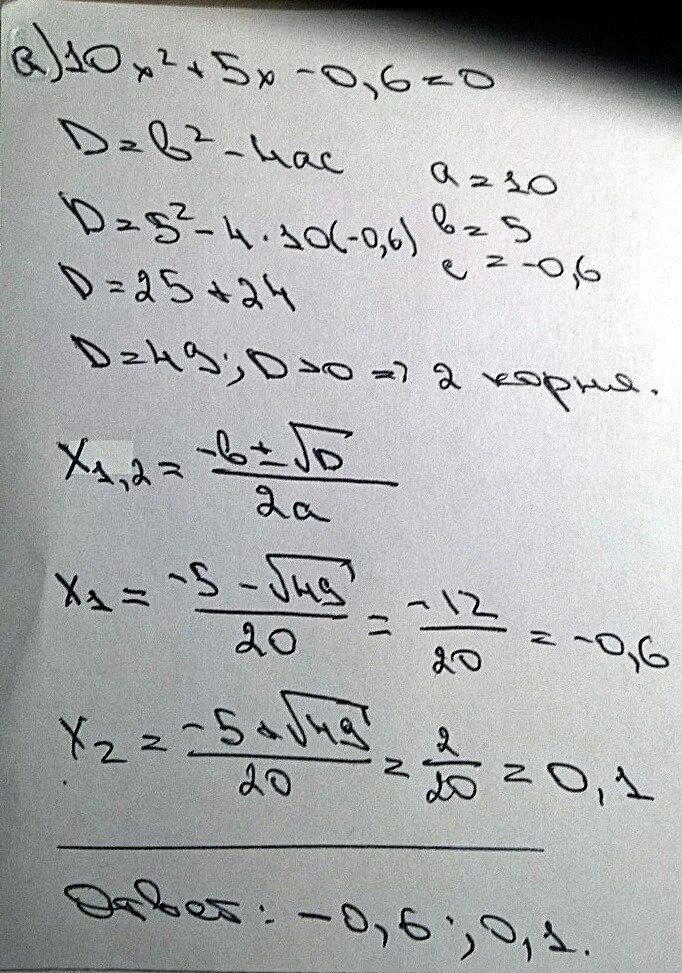 а) 10x² + 5x - 0,6 = 0
D = b² - 4ac
a = 10
D = 5² - 4 · 10(-0,6)
b = 5
c = -0,6
D = 25 + 24
D = 49; D > 0 => 2 корня.
X₁,₂ = (-b ± √D) / 2a
X₁ = (-5 - √49) / 20 = -12 / 20 = -0,6
X₂ = (-5 + √49) / 20 = 2 / 20 = 0,1
Ответ: -0,6; 0,1.